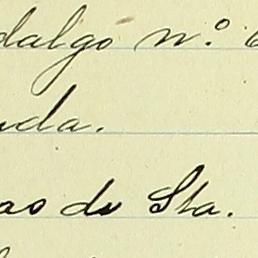 dalgo n.º 6
da.
ao de Sta.